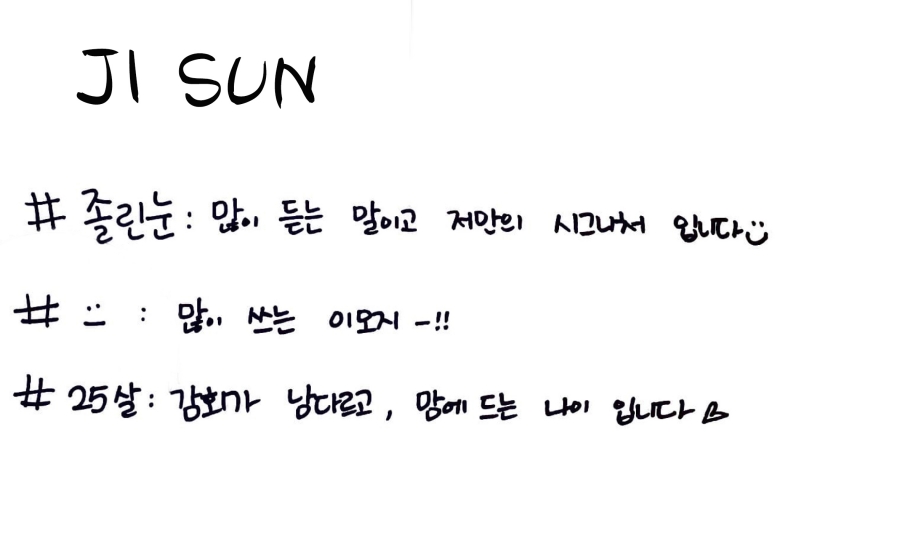 JI SUN
# 졸린눈 : 많이 듣는 말이고 저만의 시그니처 입니다 :)
# :_ : 많이 쓰는 이모지 -!!
# 25살 : 감회가 남다르고, 맘에 드는 나이 입니다 ♡